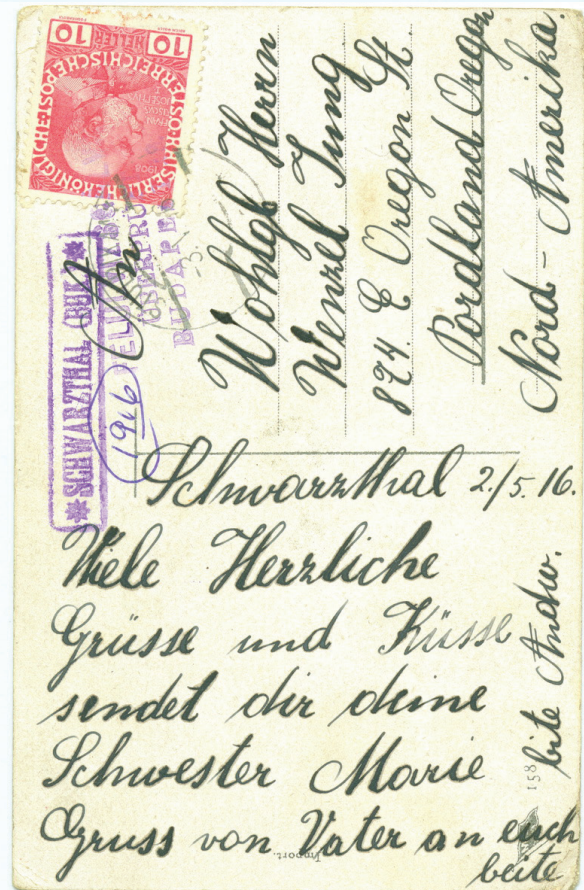 10 HELLER 10
KAISERLICHE KÖNIGLICHE
ÖSTERREICHISCHE POST
1908
SCHWARZTHAL
BUDAPEST
1916
An
Wohlgb Herrn
Wenzel Jung
874. E Oregon St.
Pordland Oregon
Nord-Amerika.
Schwarzthal 2/5. 16.
Viele Herzliche
Grüsse und Küsse
sendet dir deine
Schwester Marie
Gruss von Vater an euch
beite
bite Andw.
158
Import.